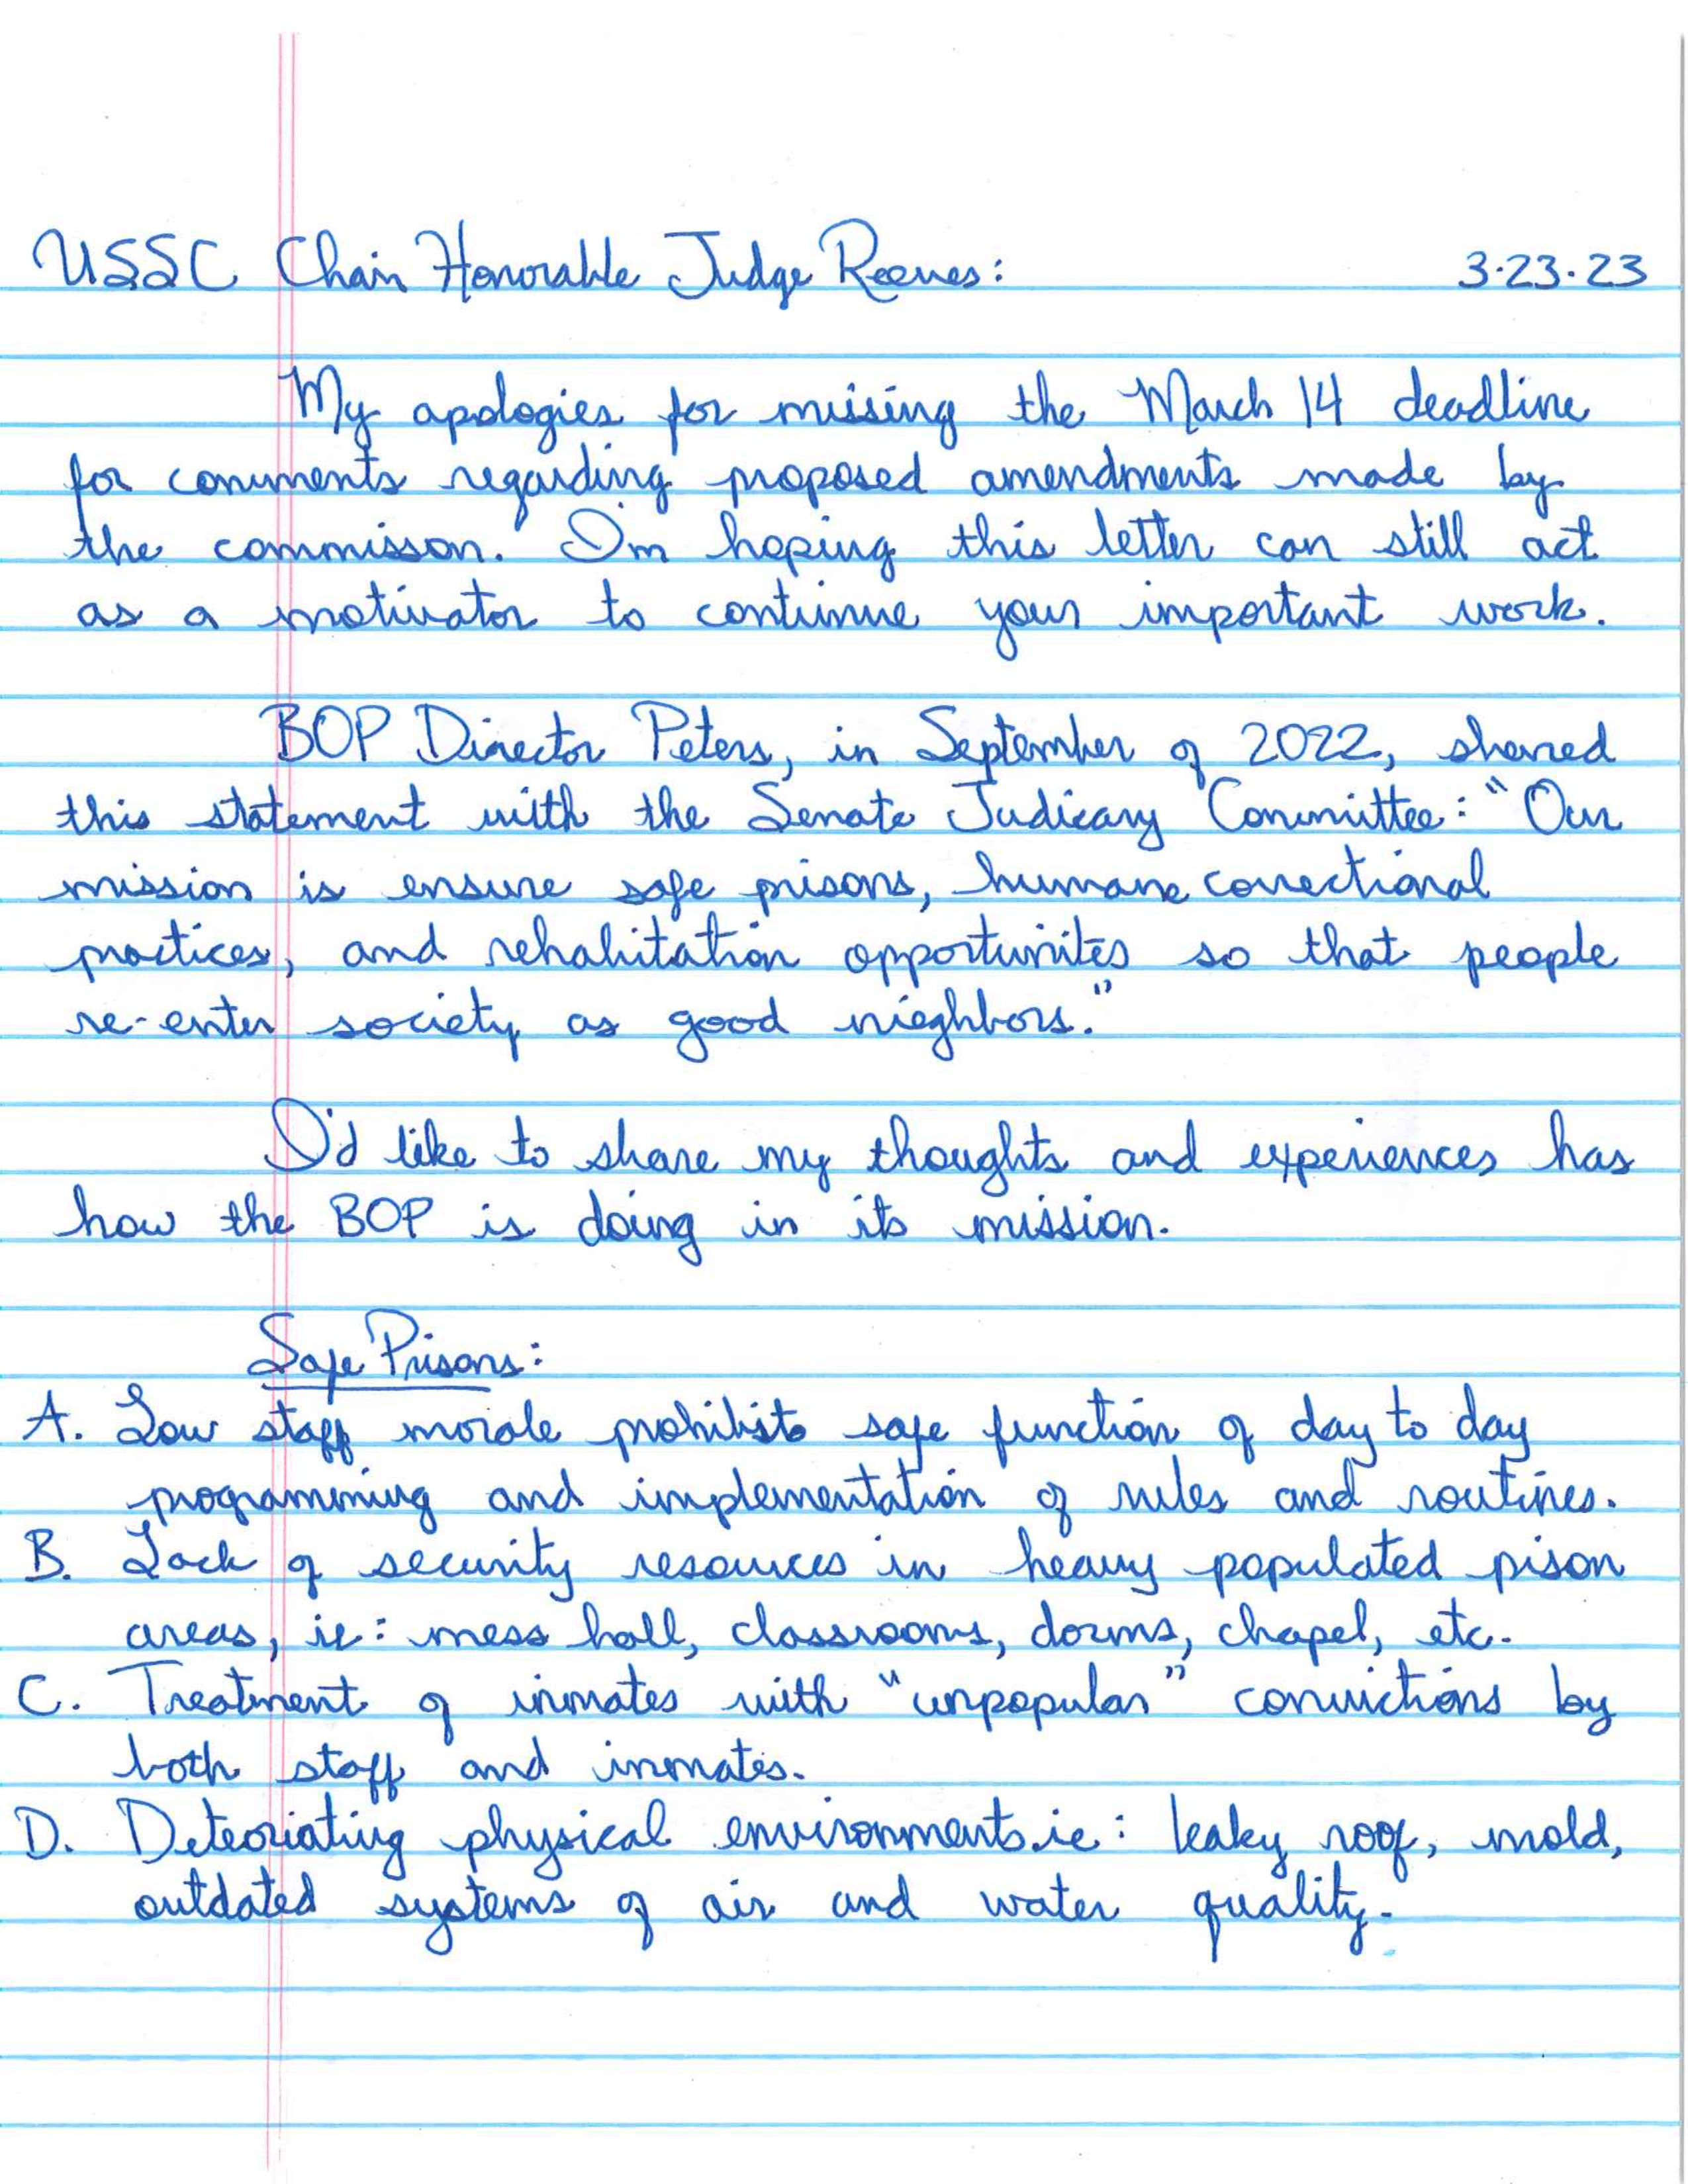 USSC Chair Honorable Judge Reeves: 3-23-23
My apologies for missing the March 14 deadline
for comments regarding proposed amendments made by
the commisson. I'm hoping this letter can still act
as a motivator to continue your important work.
BOP Director Peters, in September of 2022, shared
this statement with the Senate Judicary Committee: "Our
mission is ensure safe prisons, humane correctional
practices, and rehabitation opportunites so that people
re-enter society as good nieghbors."
I'd like to share my thoughts and experiences has
how the BOP is doing in its mission.
Safe Prisons:
A. Low staff morale prohibists safe function of day to day
programming and implementation of rules and routines.
B. Lack of security resources in heavy populated pison
areas, ie: mess hall, classrooms, dorms, chapel, etc.
C. Treatment of inmates with "unpopular" convictions by
both staff and inmates.
D. Deteoriating physical environments.ie: leaky roof, mold,
outdated systems of air and water quality.